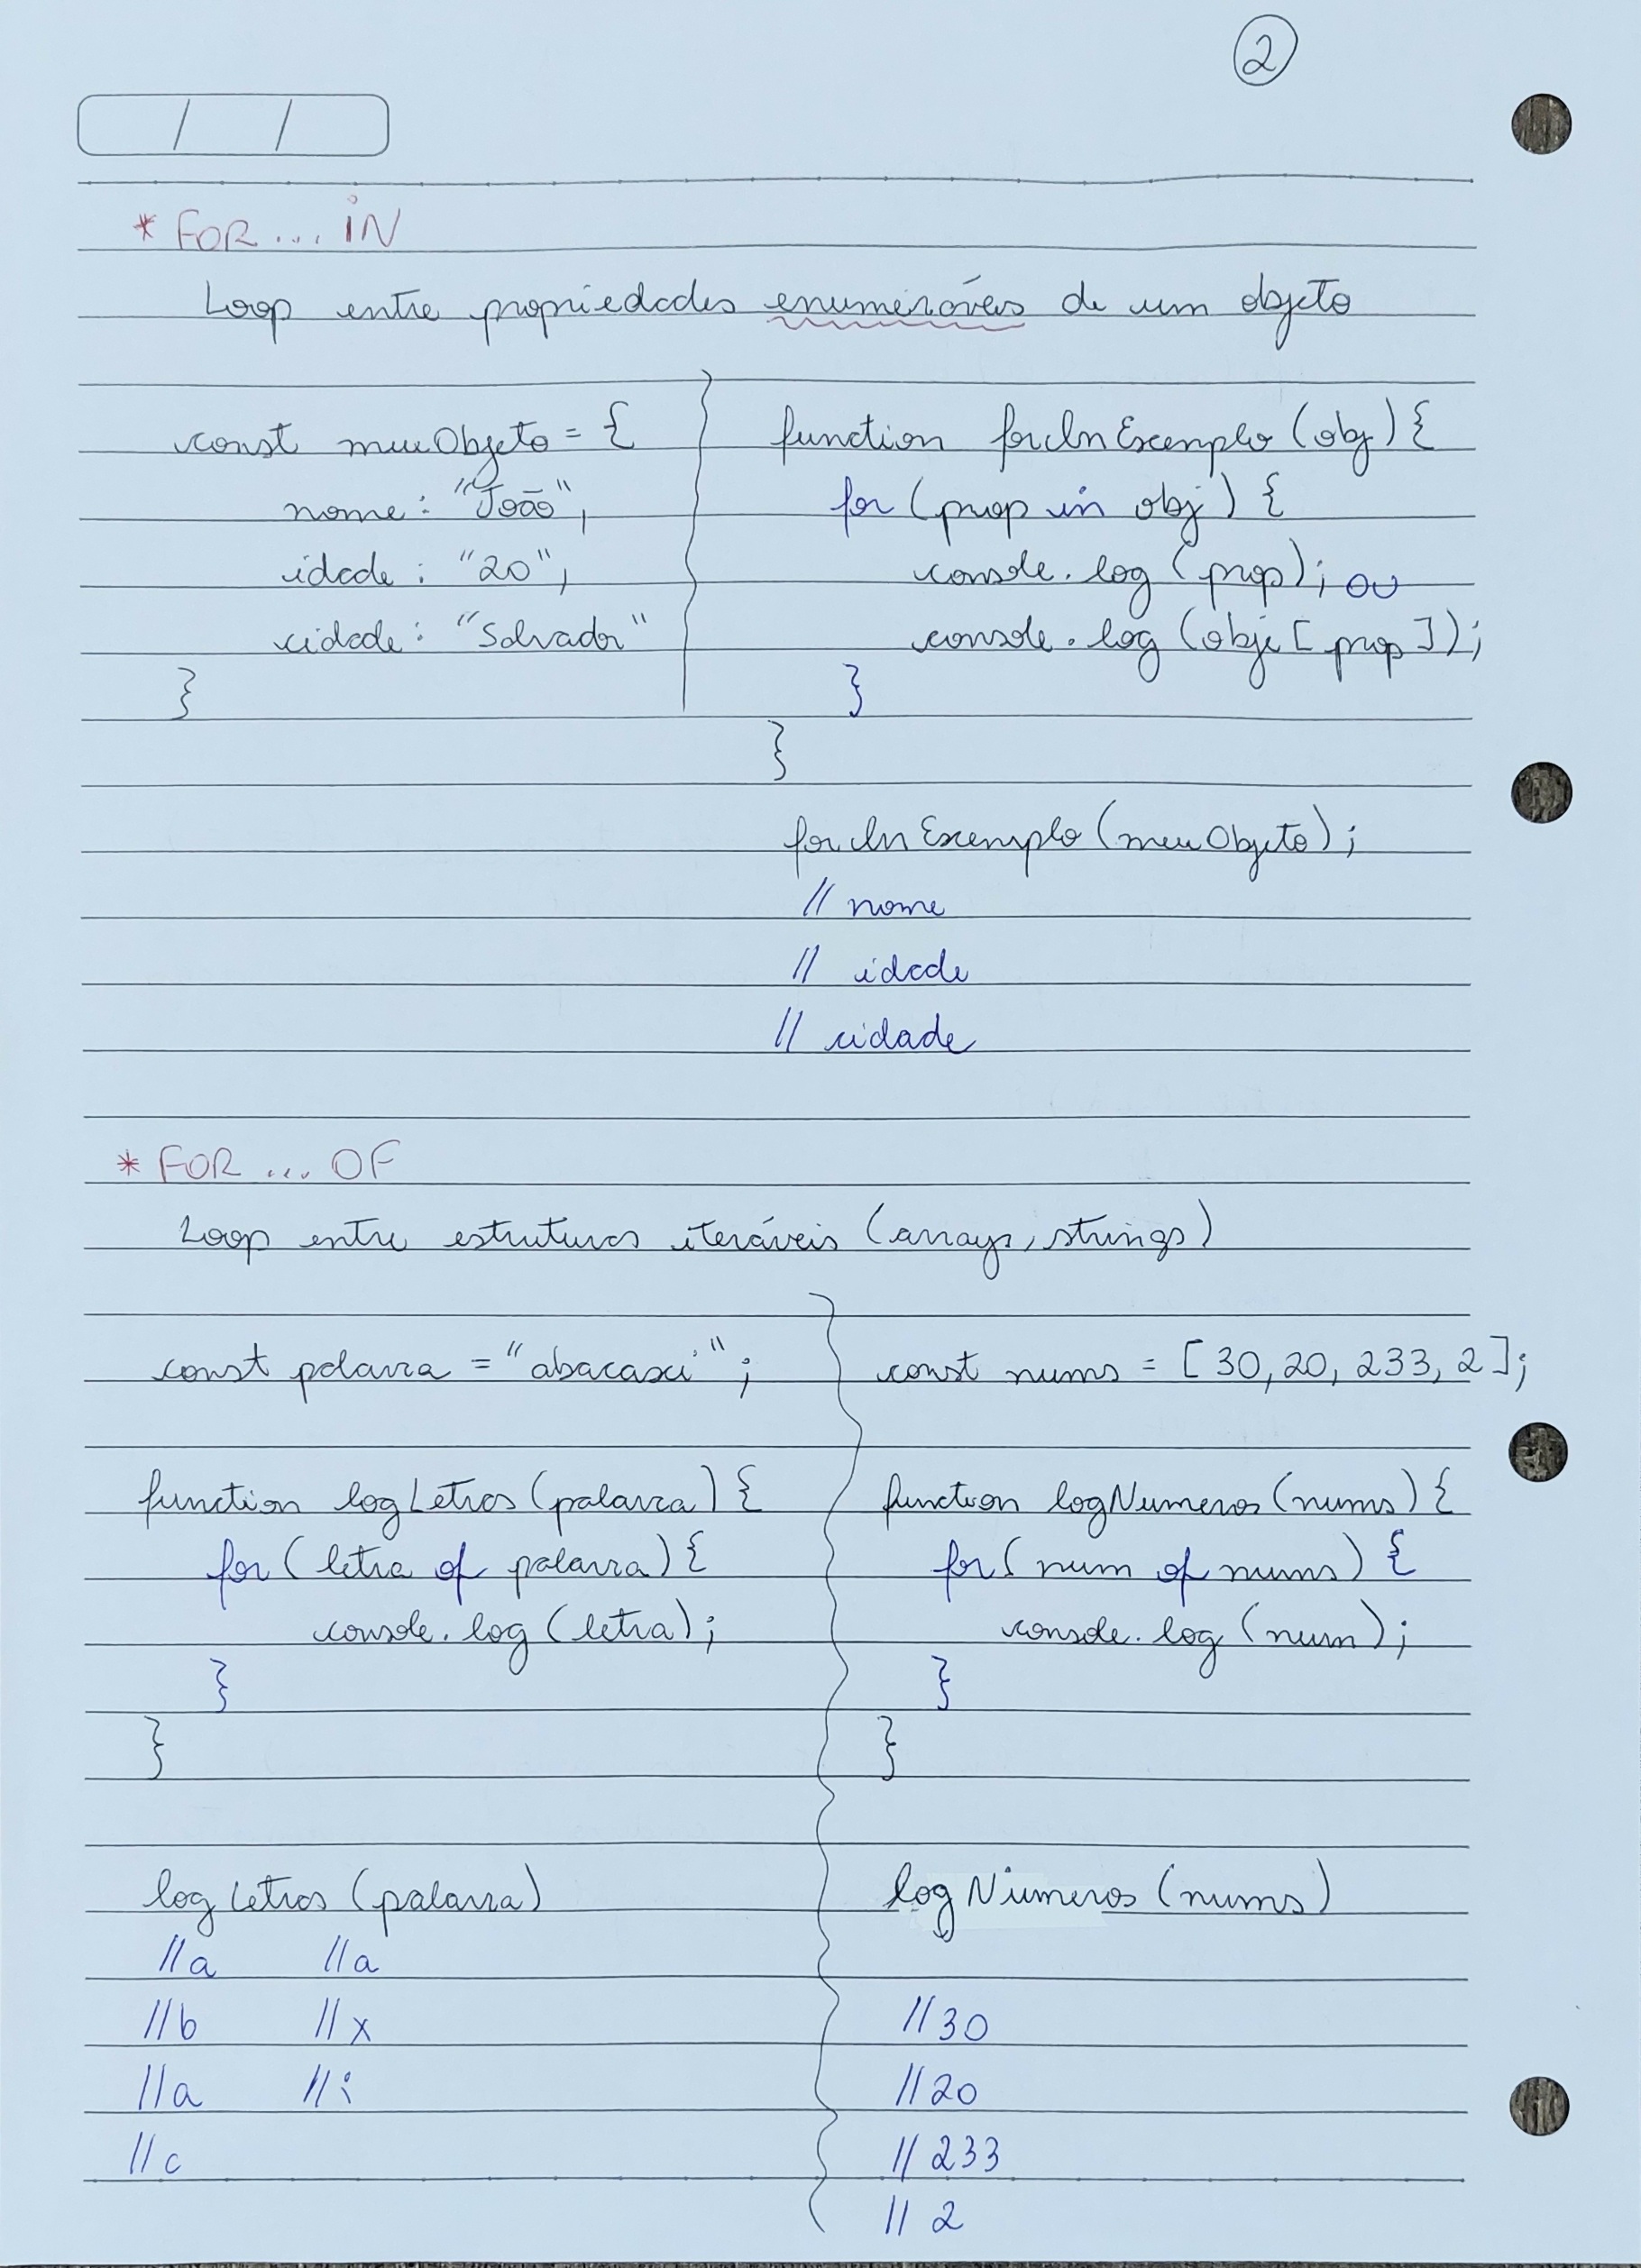 2
/ /
* FOR ... IN
Loop entre propriedades enumeráveis de um objeto
const meuObjeto = {
nome: "João",
idade: "20",
cidade: "Salvador"
}
function forInExemplo (obj) {
for (prop in obj) {
console.log (prop); ou
console.log (obj[prop]);
}
}
forInExemplo (meuObjeto);
// nome
// idade
// cidade
* FOR ... OF
Loop entre estruturas iteráveis (arrays, strings)
const palavra = "abacaxi";
function logLetras (palavra) {
for (letra of palavra) {
console.log (letra);
}
}
logLetras (palavra)
//a //a
//b //x
//a //i
//c
const nums = [30, 20, 233, 2];
function logNumeros (nums) {
for (num of nums) {
console.log (num);
}
}
logNúmeros (nums)
//30
//20
//233
//2